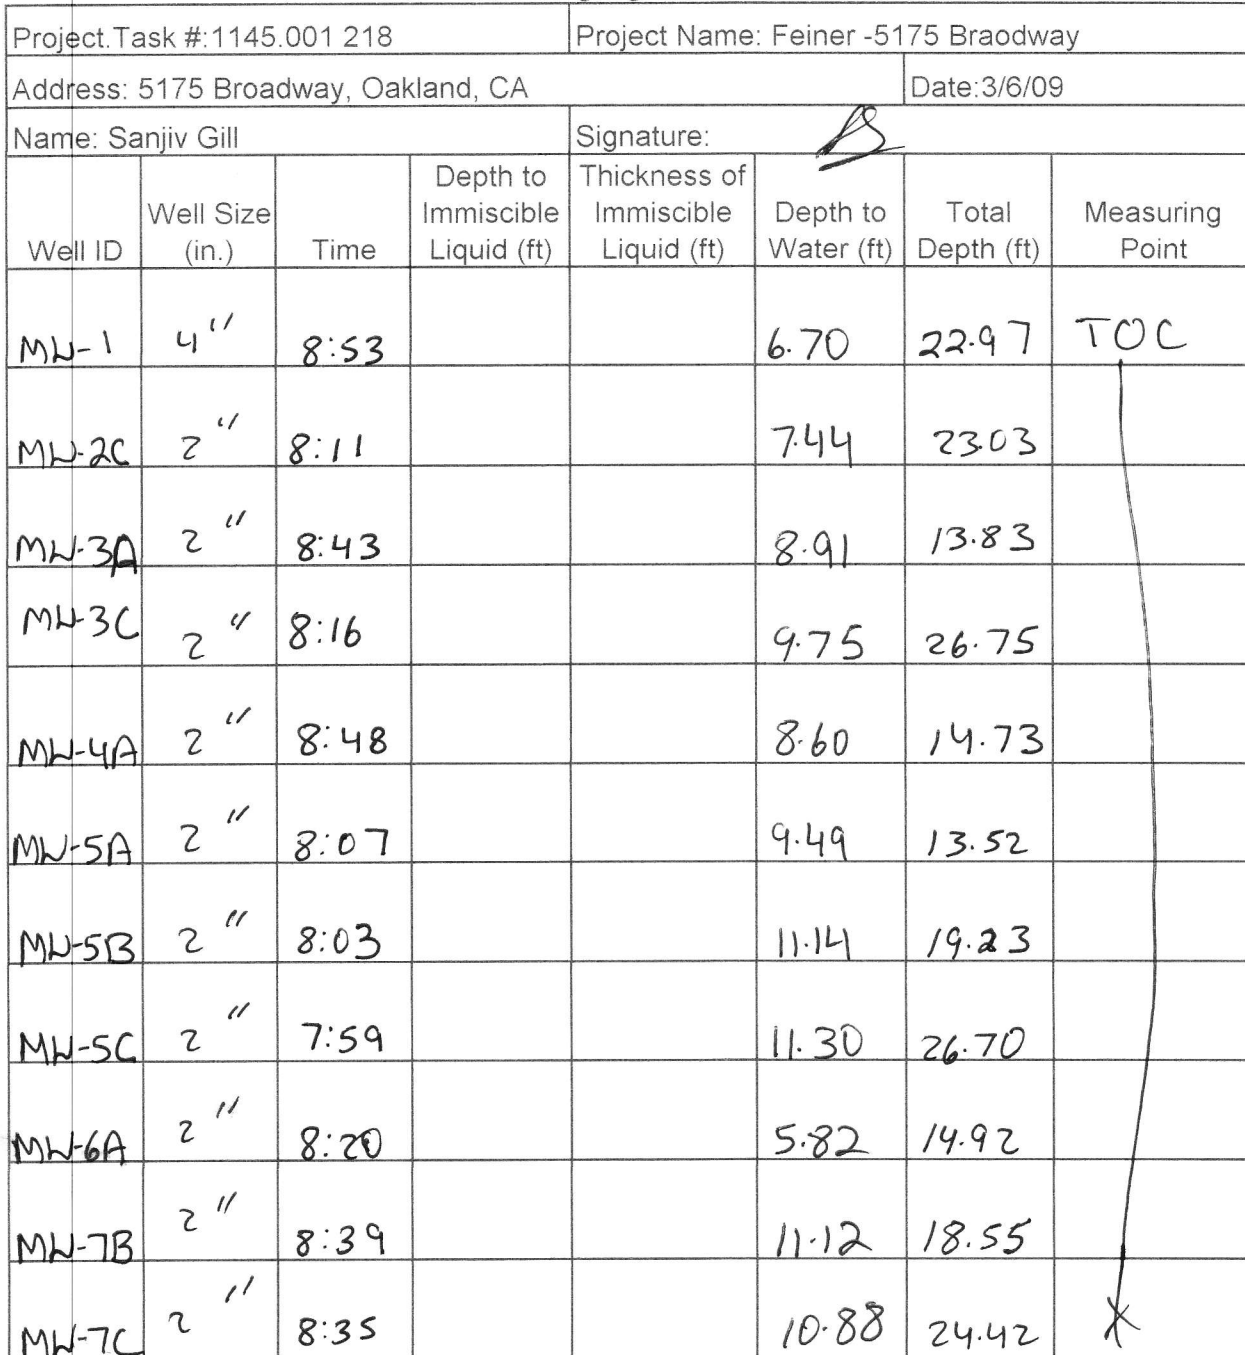 Project.Task #:1145.001 218 Project Name: Feiner -5175 Braodway
Address: 5175 Broadway, Oakland, CA Date:3/6/09
Name: Sanjiv Gill Signature:
Well ID Well Size (in.) Time Depth to Immiscible Liquid (ft) Thickness of Immiscible Liquid (ft) Depth to Water (ft) Total Depth (ft) Measuring Point
MW-1 4" 8:53 6.70 22.97 TOC
MW-2C 2" 8:11 7.44 23.03
MW-3A 2" 8:43 8.91 13.83
MW-3C 2" 8:16 9.75 26.75
MW-4A 2" 8:48 8.60 14.73
MW-5A 2" 8:07 9.49 13.52
MW-5B 2" 8:03 11.14 19.23
MW-5C 2" 7:59 11.30 26.70
MW-6A 2" 8:20 5.82 14.92
MW-7B 2" 8:39 11.12 18.55
MW-7C 2" 8:35 10.88 24.42